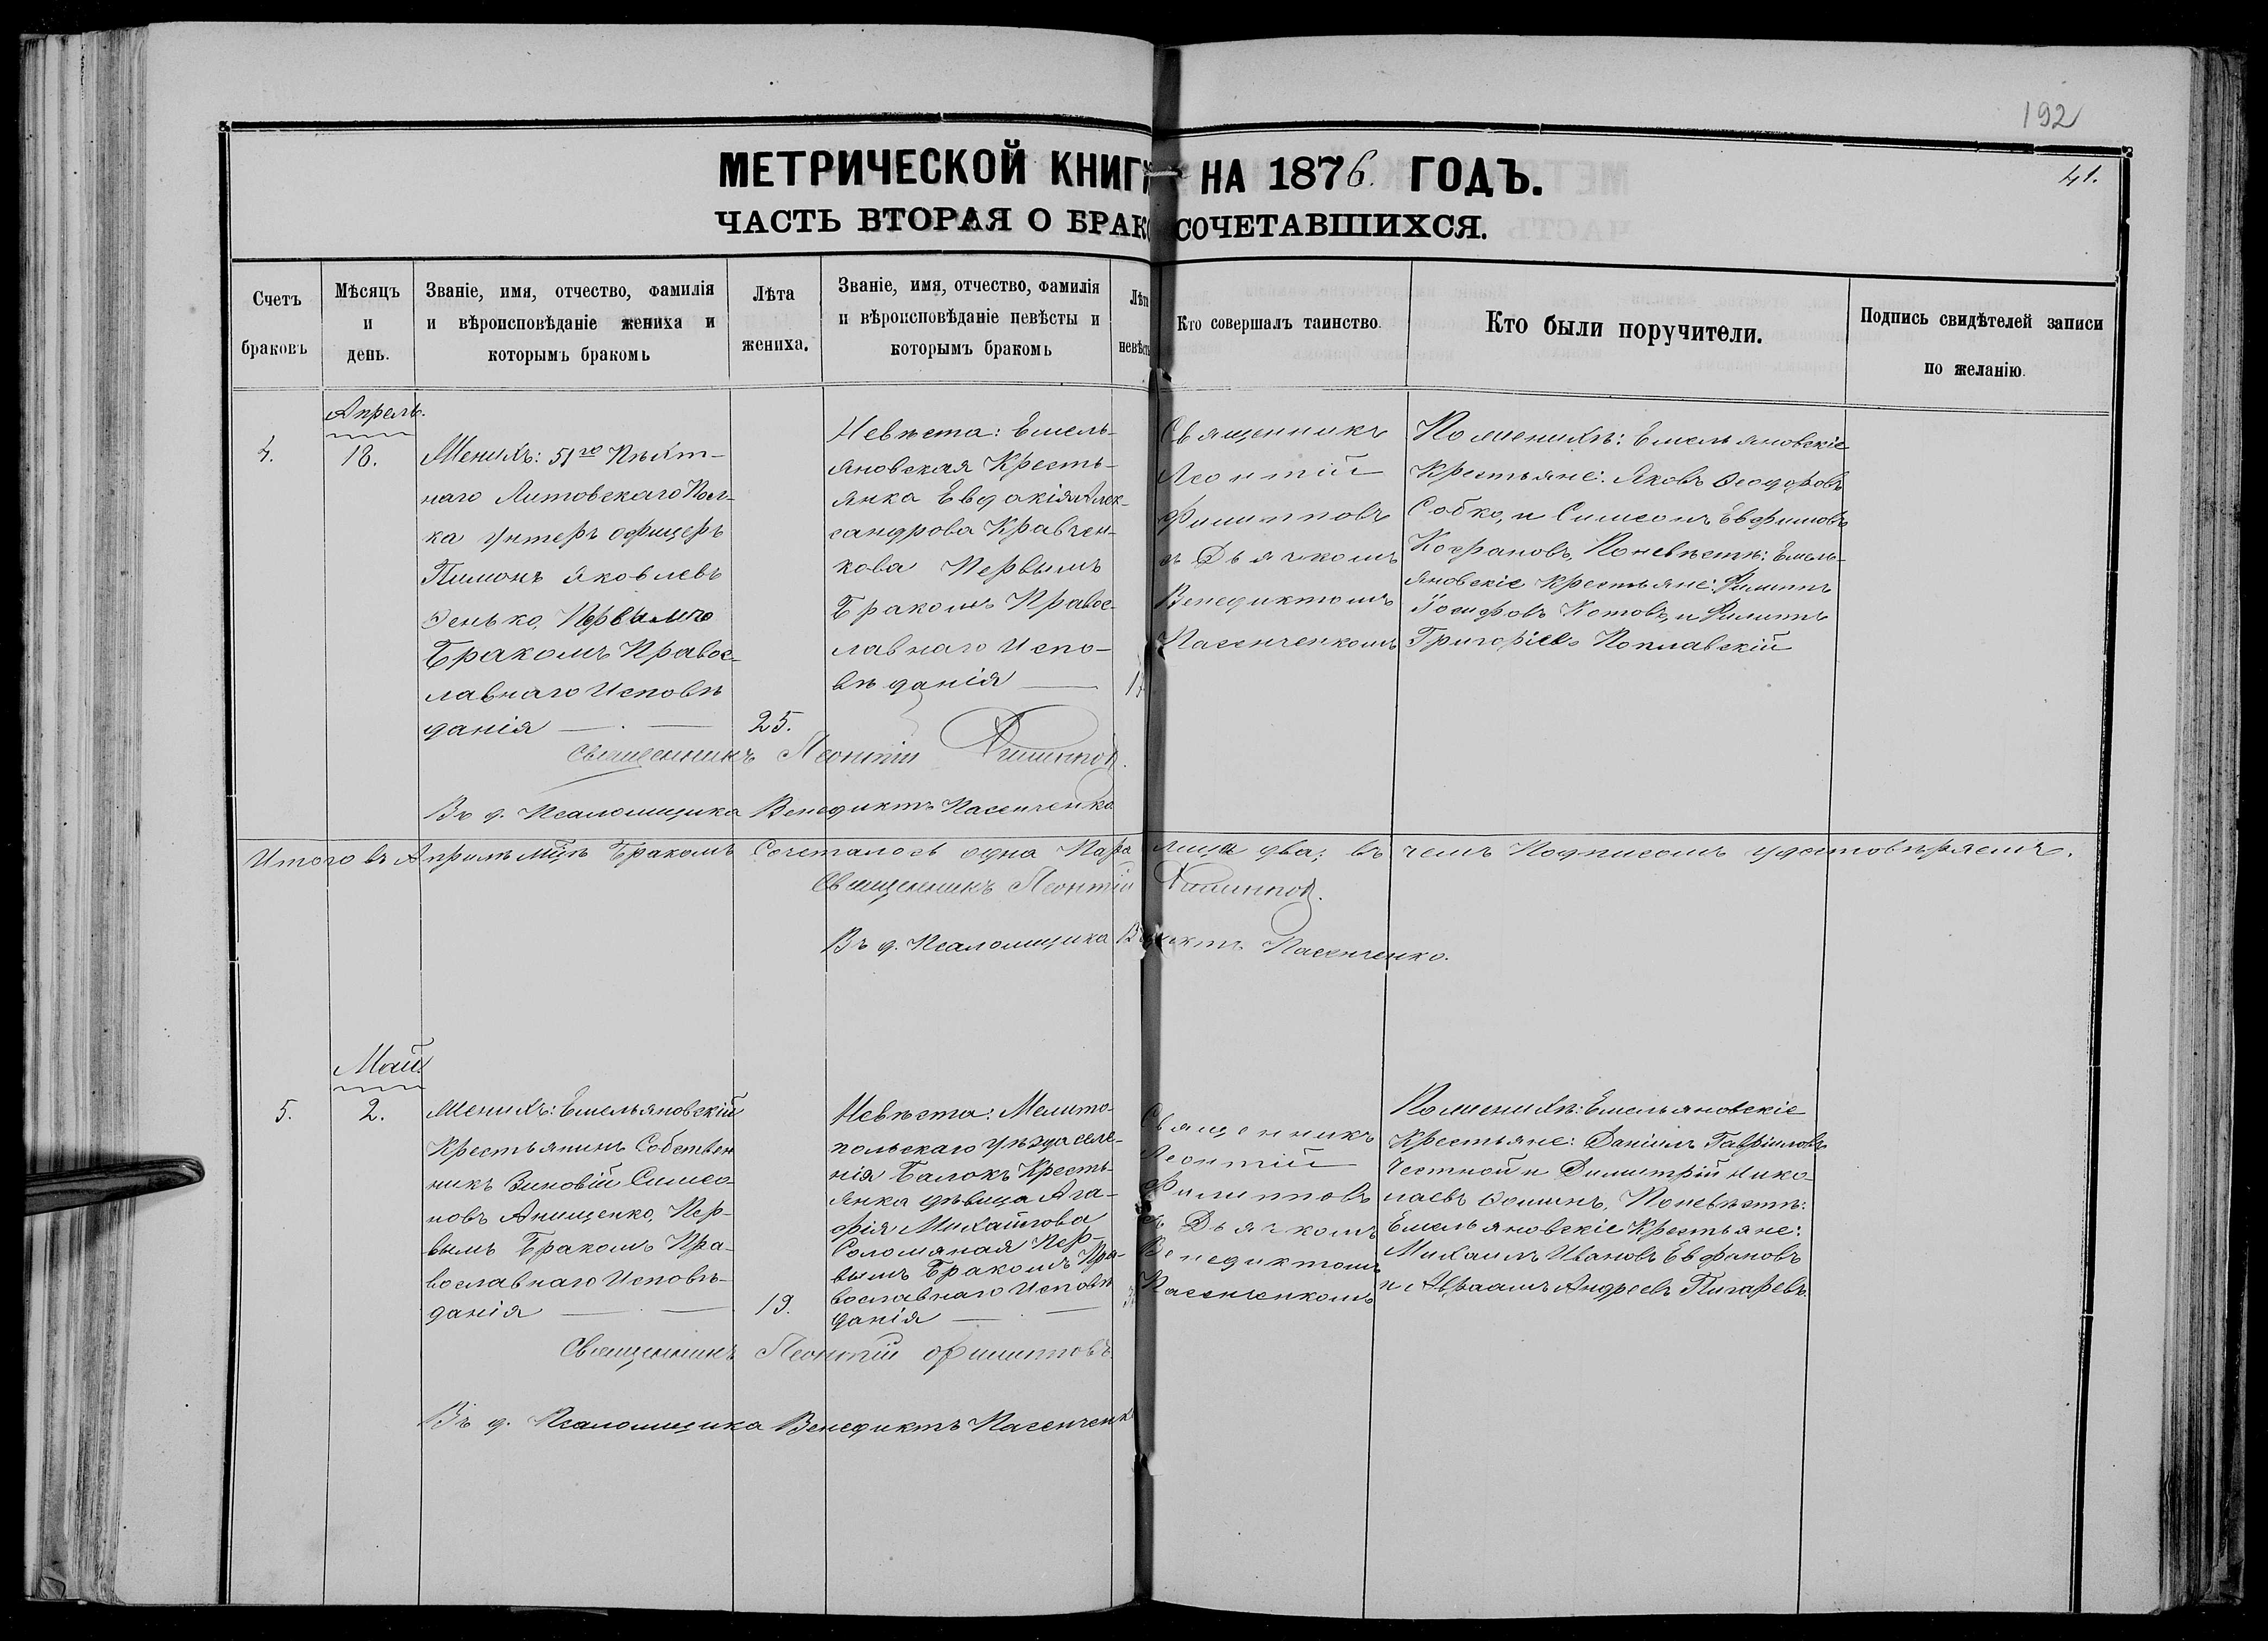 192
41.
МЕТРИЧЕСКОЙ КНИГИ НА 1876. ГОДЪ.
ЧАСТЬ ВТОРАЯ О БРАКОСОЧЕТАВШИХСЯ.
Счетъ
браковъ
Мѣсяцъ
и
день.
Званіе, имя, отчество, фамилія
и вѣроисповѣданіе жениха и
которымъ бракомъ
Лѣта
жениха.
Званіе, имя, отчество, фамилія
и вѣроисповѣданіе невѣсты и
которымъ бракомъ
Лѣта
невѣсты
Кто совершалъ таинство.
Кто были поручители.
Подпись свидѣтелей записи
по желанію.
4.
Апрель.
18.
Женихъ: 51го Пѣхт-
наго Литовскаго Пол-
ка унтеръ офицеръ
Пимонъ Яковлевъ
Сенько, Первымъ
Бракомъ Правос-
лавнаго Исповѣ
данія
25.
Невѣста: Емель-
яновская Кресть-
янка Евдокія Алек-
сандрова Кравчен-
кова Первымъ
Бракомъ Правос-
лавнаго Испо-
вѣданія
Священникъ
Леонтій
Филипповъ
съ Дьячкомъ
Венедиктомъ
Пасенченкомъ
По женихѣ: Емельяновскіе
Крестьяне: Яковъ Ѳеодоровъ
Собко, и Симеонъ Евфимовъ
Кофановъ, По невѣстѣ: Емель-
яновскіе Крестьяне: Филиппъ
Іосифовъ Котовъ, и Филиппъ
Григоріевъ Поплавскій
Священникъ Леонтій Филиппов.
Въ д. Псаломщика Венедиктъ Пасенченко
Итого въ Априлѣ мцѣ Бракомъ Сочеталось одна Пара лица два; въ чемъ Подписомъ удостовѣряемъ.
Священникъ Леонтій Филиппов.
Въ д. Псаломщика Венедиктъ Пасенченко.
5.
Май.
2.
Женихъ: Емельяновскій
Крестьянинъ Собствен
никъ Зиновій Симео-
новъ Анищенко, Пер-
вымъ Бракомъ Пра-
вославнаго Исповѣ-
данія
19.
Невѣста: Мелито-
польскаго уѣзда селе-
нія Балокъ Кресть-
янка дѣвица Ага-
фія Михайлова
Соломяная Пер-
вымъ Бракомъ Пра-
вославнаго Исповѣ
данія
Священникъ
Леонтій
Филипповъ
съ Дьячкомъ
Венедиктомъ
Пасенченкомъ
По женихѣ: Емельяновскіе
Крестьяне: Даніилъ Гавріиловъ
Честной и Димитрій Нико-
лаевъ Ѳоминъ, По невѣстѣ:
Емельяновскіе Крестьяне:
Михаилъ Ивановъ Евфановъ
и Авраамъ Андреевъ Пигаревъ.
Священникъ Леонтій Филипповъ.
Въ д. Псаломщика Венедиктъ Пасенченко